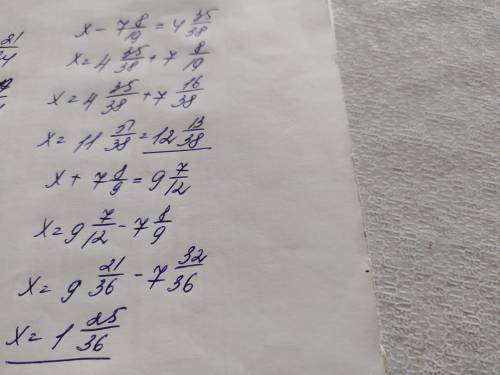 x - 7 8/19 = 4 35/38
x = 4 35/38 + 7 8/19
x = 4 35/38 + 7 16/38
x = 11 51/38 = 12 13/38
x + 7 8/9 = 9 7/12
x = 9 7/12 - 7 8/9
x = 9 21/36 - 7 32/36
x = 1 25/36